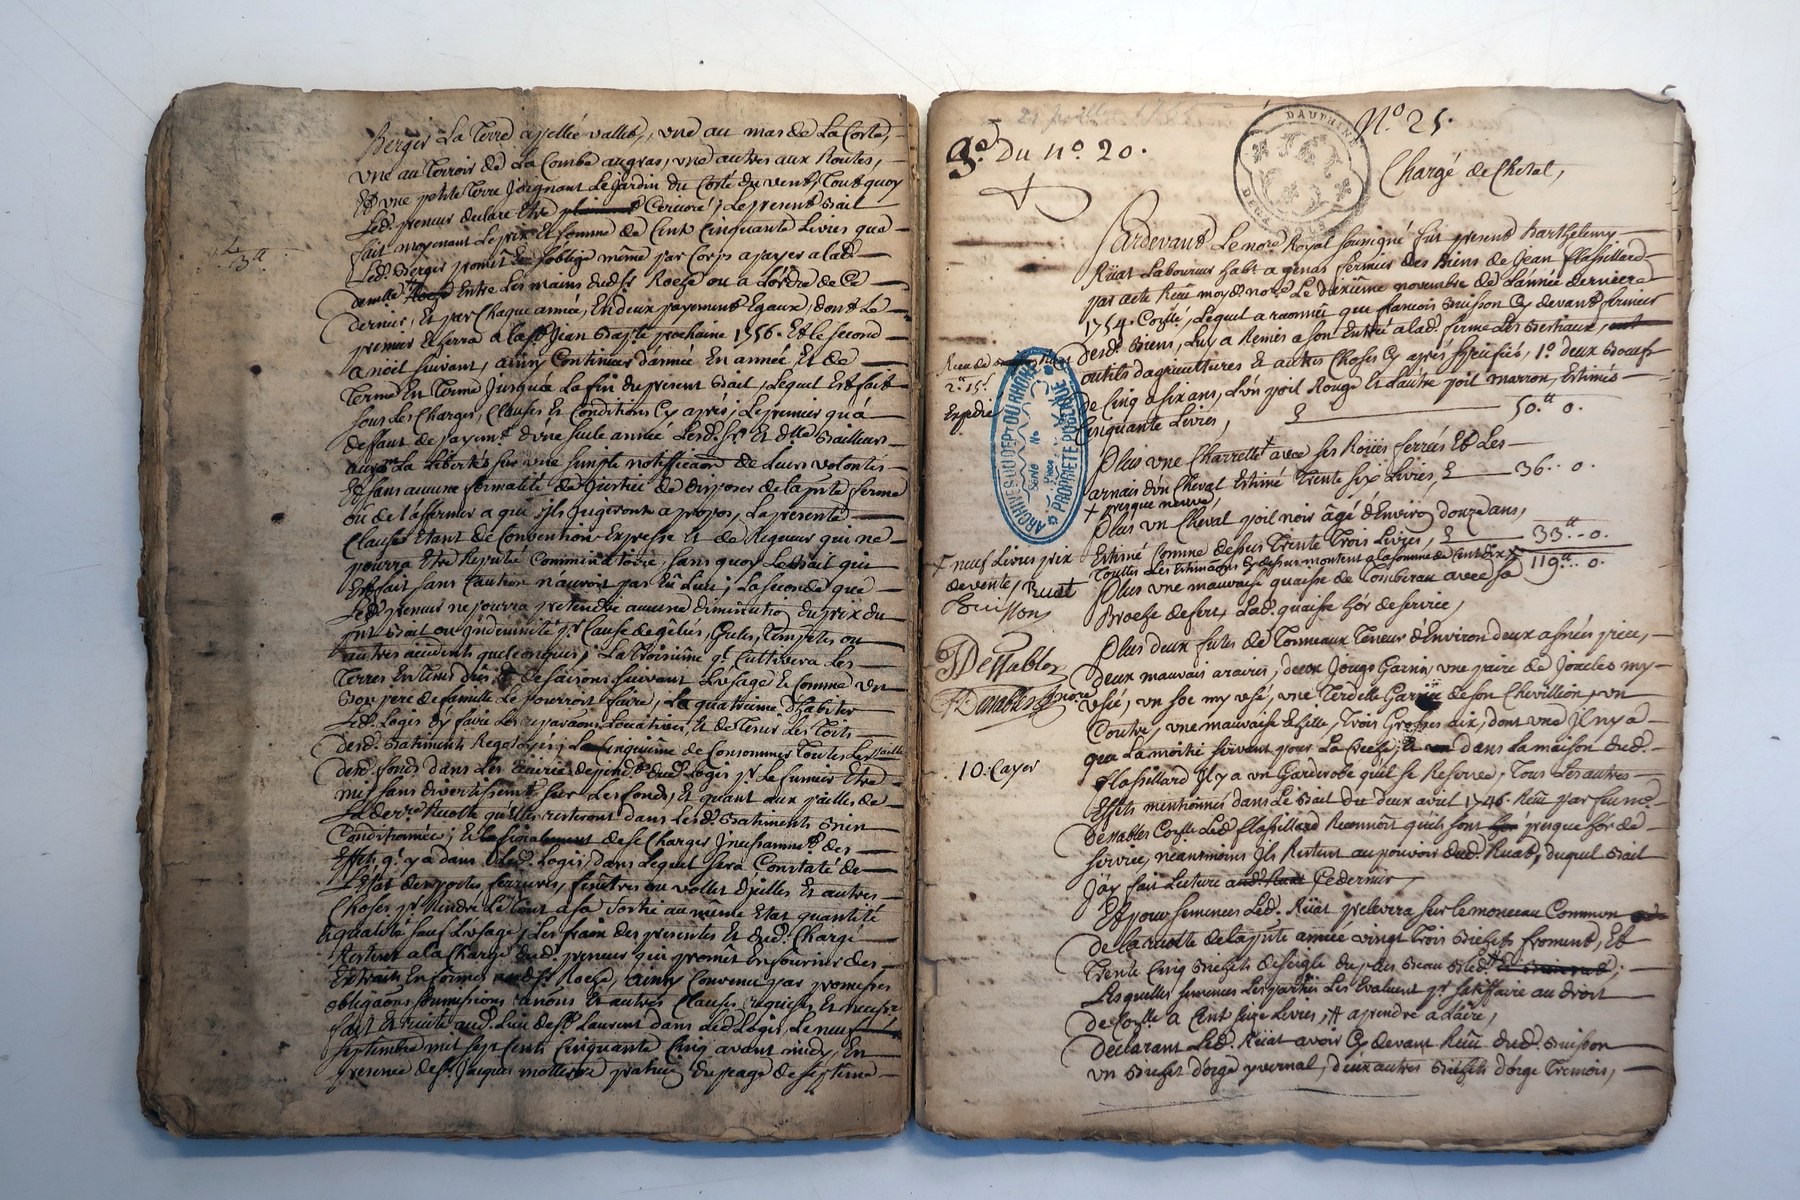 Berger, La Terre apellée vallet, une au mas de La Coste,
une au Terroir de La Combe augras, une autres aux Routes,
Et une petite Terre Joignant Le Jardin du Costé du vent, Tout quoy
Led. preneur declare Etre Le present Bail
fait moyenant Le prix Et somme de Cent Cinquante Livres que
Led. Berger promet Et s'oblige même par Corps a payer a lad.
demlle Entre Les mains dud. Sr. Roche ou a Lordre de Ce
dernier, Et par Chaque année, En deux payements Egaux, dont Le
premier Esserra a la St. Jean Bapte prochaine 1756. Et le second
a noël suivant, ainsy Continuer d'année En année Et de
Terme En Terme Jusquèa La fin du present Bail, Lequel Est fait
sous Les Charges, Clauses Et Conditions Cy après; Le premier qu'a
deffaut de payemt. d'une seule année Lesd. Sr. Et dlle Bailleurs
auront La Liberté sur une simple notification de Leurs volontés
Et sans aucune formalité de Justice de disposer de la pnte ferme
ou de l'affermer a qui Ils Jugeront apropos, La presente
Clause Etant de Convention Expresse Et de Rigueur qui ne
pourra Etre Reputé Comminatoire, sans quoy Le Bail qui
Est fait sans Caution n'auroit pas Eû Lieu; La seconde que
Led. preneur ne pourra pretendre aucune diminution du prix du
pnt Bail ou Indemnité pr. Cause de gelées, Greles, Tempetes ou
autres accidents quelconques; La Troisieme qt. Cultivera Les
Terres En Tems dûs Et de saisons suivant L'usage Et Comme un
Bon pere de famille Le pourroit faire; La quatrieme d'habiter
Led. Logis d'y faire Les reparaons Locatives, Et de Tenir Les Toits
desd. Batiments Regotoyés; La Cinquieme de Consommer Toutes Les pailles
desd. fonds dans Les Ecuries dependts. dud. Logis pr. Le fumier Etre
mis sans divertissement sur Les fonds, Et quant aux pailles de
La derre. Recolte qu'elles resteront dans Lesd. Batiments Bien
Conditionnées; Et de se Charger Incessamment des
Effets qt. y a dans Led. Logis, dans Lequel sera Constaté de
L'Etat des portes ferrures, fenêtres ou vollet d'jelles Et autres
Choses pr. Rendre Le Tout a sa sortie au même Etat quantité
Et qualité sauf L'usage; Les fraix des presentes Et dud. Chargé
Restent a la Charge dud. preneur qui promet En fournir des
Extraits En formes aud. Sr. Roche, ainsy Convenu par promesses
obligaons soumissions renons Et autres Clauses requises Et necessres
fait Et recité aud. Lieu de St. Laurent dans Led. Logis, Le neuf
septembre mil sept Cents Cinquante Cinq avant midy, En
presence de Sr. Jacques praticien du peage de Septeme
21 Juillet
ge. du no. 20.
No. 25.
DAUPHINE
Chargé de Chetal,
Pardevant Le nore. Royal soussigné fut present Barthelemy
Rüat Laboureur habt. a genas fermier des Biens de Jean Flassillard
par acte Reçu moyd. nore. Le dixiême novembre de L'année derniere
1754. Conllé, Lequel a raconnu que francois Buisson Cy devant fermier
desd. Biens, Luy a Remis a son Entrée a lad. ferme Les Bestiaux,
outils d'agricultures Et autres Choses Cy aprés specifiés, 1o. deux Boeufs
de Cinq a six ans, L'un poil Rouge Et L'autre poil marron, Estimés
Cinquante Livres, 50.tt 0.
Plus une Charrette + avec ses Roües ferrées Et Les
arnais d'un Cheval Estimé Trente six Livres, 36.. 0.
+ presque neuve,
Plus un Cheval poil noir âgé d'Environ douze ans,
Estimé Comme dessus Trente Trois Livres, 33.tt.. 0.
Toutes Les Estimaons Cy dessus montent a la somme de Cent dix + 119.tt.. 0.
Plus une mauvaise quaisse de Tombereau avec sa
Broche de fert, Lad. quaisse hôr de service,
Plus deux futes de Tonneaux Teneur d'Environ deux asnées piece,
deux mauvais araires, deux Jougs Garni, une paire de Joucles my
usée, un soc my usé, une Terdelle Garnie de son Chevillion, un
Coutre, une mauvaise Echelle, Trois Greppes dix, dont une Il ny a
que La moitié servant pour La Creche; dans La maison dud.
Flassillard Il y a un Garderobe qu'il se Reserve, Tous Les autres
Effets mentionnés dans Le Bail du deux avril 1746. Reçu par feu me.
Desvables Conllé Led. Flassillard Reconnoit qu'ils sont presque hôr de
service, neanmoins Ils Restent au pouvoir dud. Ruat, duquel Bail
J'ay fait Lecture a Ce dernier
Et pour semences Led. Rüat prelevera sur le monceau Commun
de la recolte de la pnte année vingt Trois Bichets froment, Et
Trente Cinq Bichets de seigle du plus Beau Bled.
Lesquelles semences Les parties Les Evaluent pr. satisfaire au droit
de Conlle a Cent seize Livres, Et aprendre a L'aire,
Declarant Led. Rüat avoir Cy devant Reçu dud. Buisson
un Bichet d'orge yvernal, deux autres Bichets d'orge Tremois,
2.tt 15s.
Expedié
ARCHIVES DU DEPT DU RHONE
Série No
Pièce
PROPRIETE PUBLIQUE
+ neuf Livres prix
de vente, Ruat
Buisson
Desvables
10. Cayer